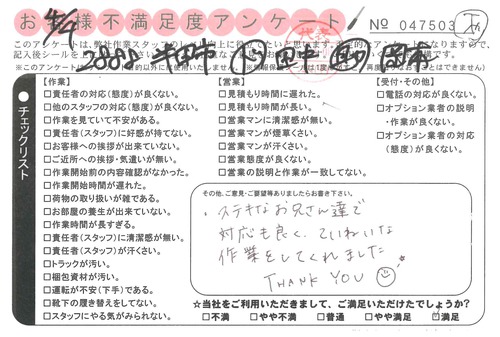 お客様不満足度アンケート
№ 047503
このアンケートは、弊社作業スタッフの
記入後シールを
【作業】
□責任者の対応(態度)が良くない。
□他のスタッフの対応(態度)が良くない。
□作業を見ていて不安がある。
□責任者(スタッフ)に好感が持てない。
□お客様への挨拶が出来ていない。
□ご近所への挨拶・気遣いが無い。
□作業開始前の内容確認がなかった。
□作業開始時間が遅れた。
□荷物の取り扱いが雑である。
□お部屋の養生が出来ていない。
□作業時間が長すぎる。
□責任者(スタッフ)に清潔感が無い。
□責任者(スタッフ)が汗くさい。
□トラックが汚い。
□梱包資材が汚い。
□運転が不安(下手)である。
□靴下の履き替えをしてない。
□スタッフにやる気がみられない。
【営業】
□見積もり時間に遅れた。
□見積もり時間が長い。
□営業マンに清潔感が無い。
□営業マンが煙草くさい。
□営業マンが汗くさい。
□営業態度が良くない。
□営業の説明と作業が一致してない。
【受付・その他】
□電話の対応が良くない。
□オプション業者の説明
・作業が良くない。
□オプション業者の対応
(態度)が良くない。
チェックリスト
その他、ご意見・ご要望等ありましたらお書き下さい。
・ステキなお兄さん達で
対応も良く、ていねいな
作業をしてくれました
THANK YOU
☆当社をご利用いただきまして、ご満足いただけたでしょうか?
□不満 □やや不満 □普通 □やや満足 □満足